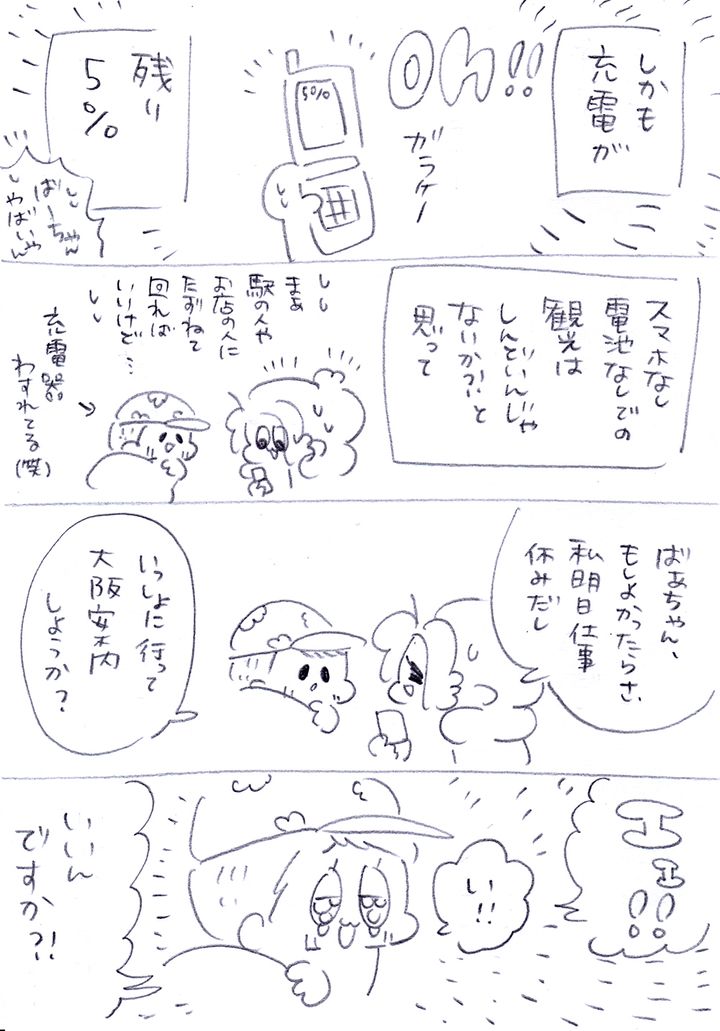 しかも
充電が
OH!!
ガラケー
5%
残り
5%
ばーちゃん
やばいやん
スマホなし
電池なしでの
観光は
しんどいんじゃ
ないか?!と
思って
まぁ
駅の人や
お店の人に
たずねて
回れば
いいけど…
充電器
わすれてる(笑)
ばあちゃん、
もしよかったらさ、
私明日仕事
休みだし
いっしょに行って
大阪案内
しようか?
エ
エ
!!
い
!!
いいん
ですか?!